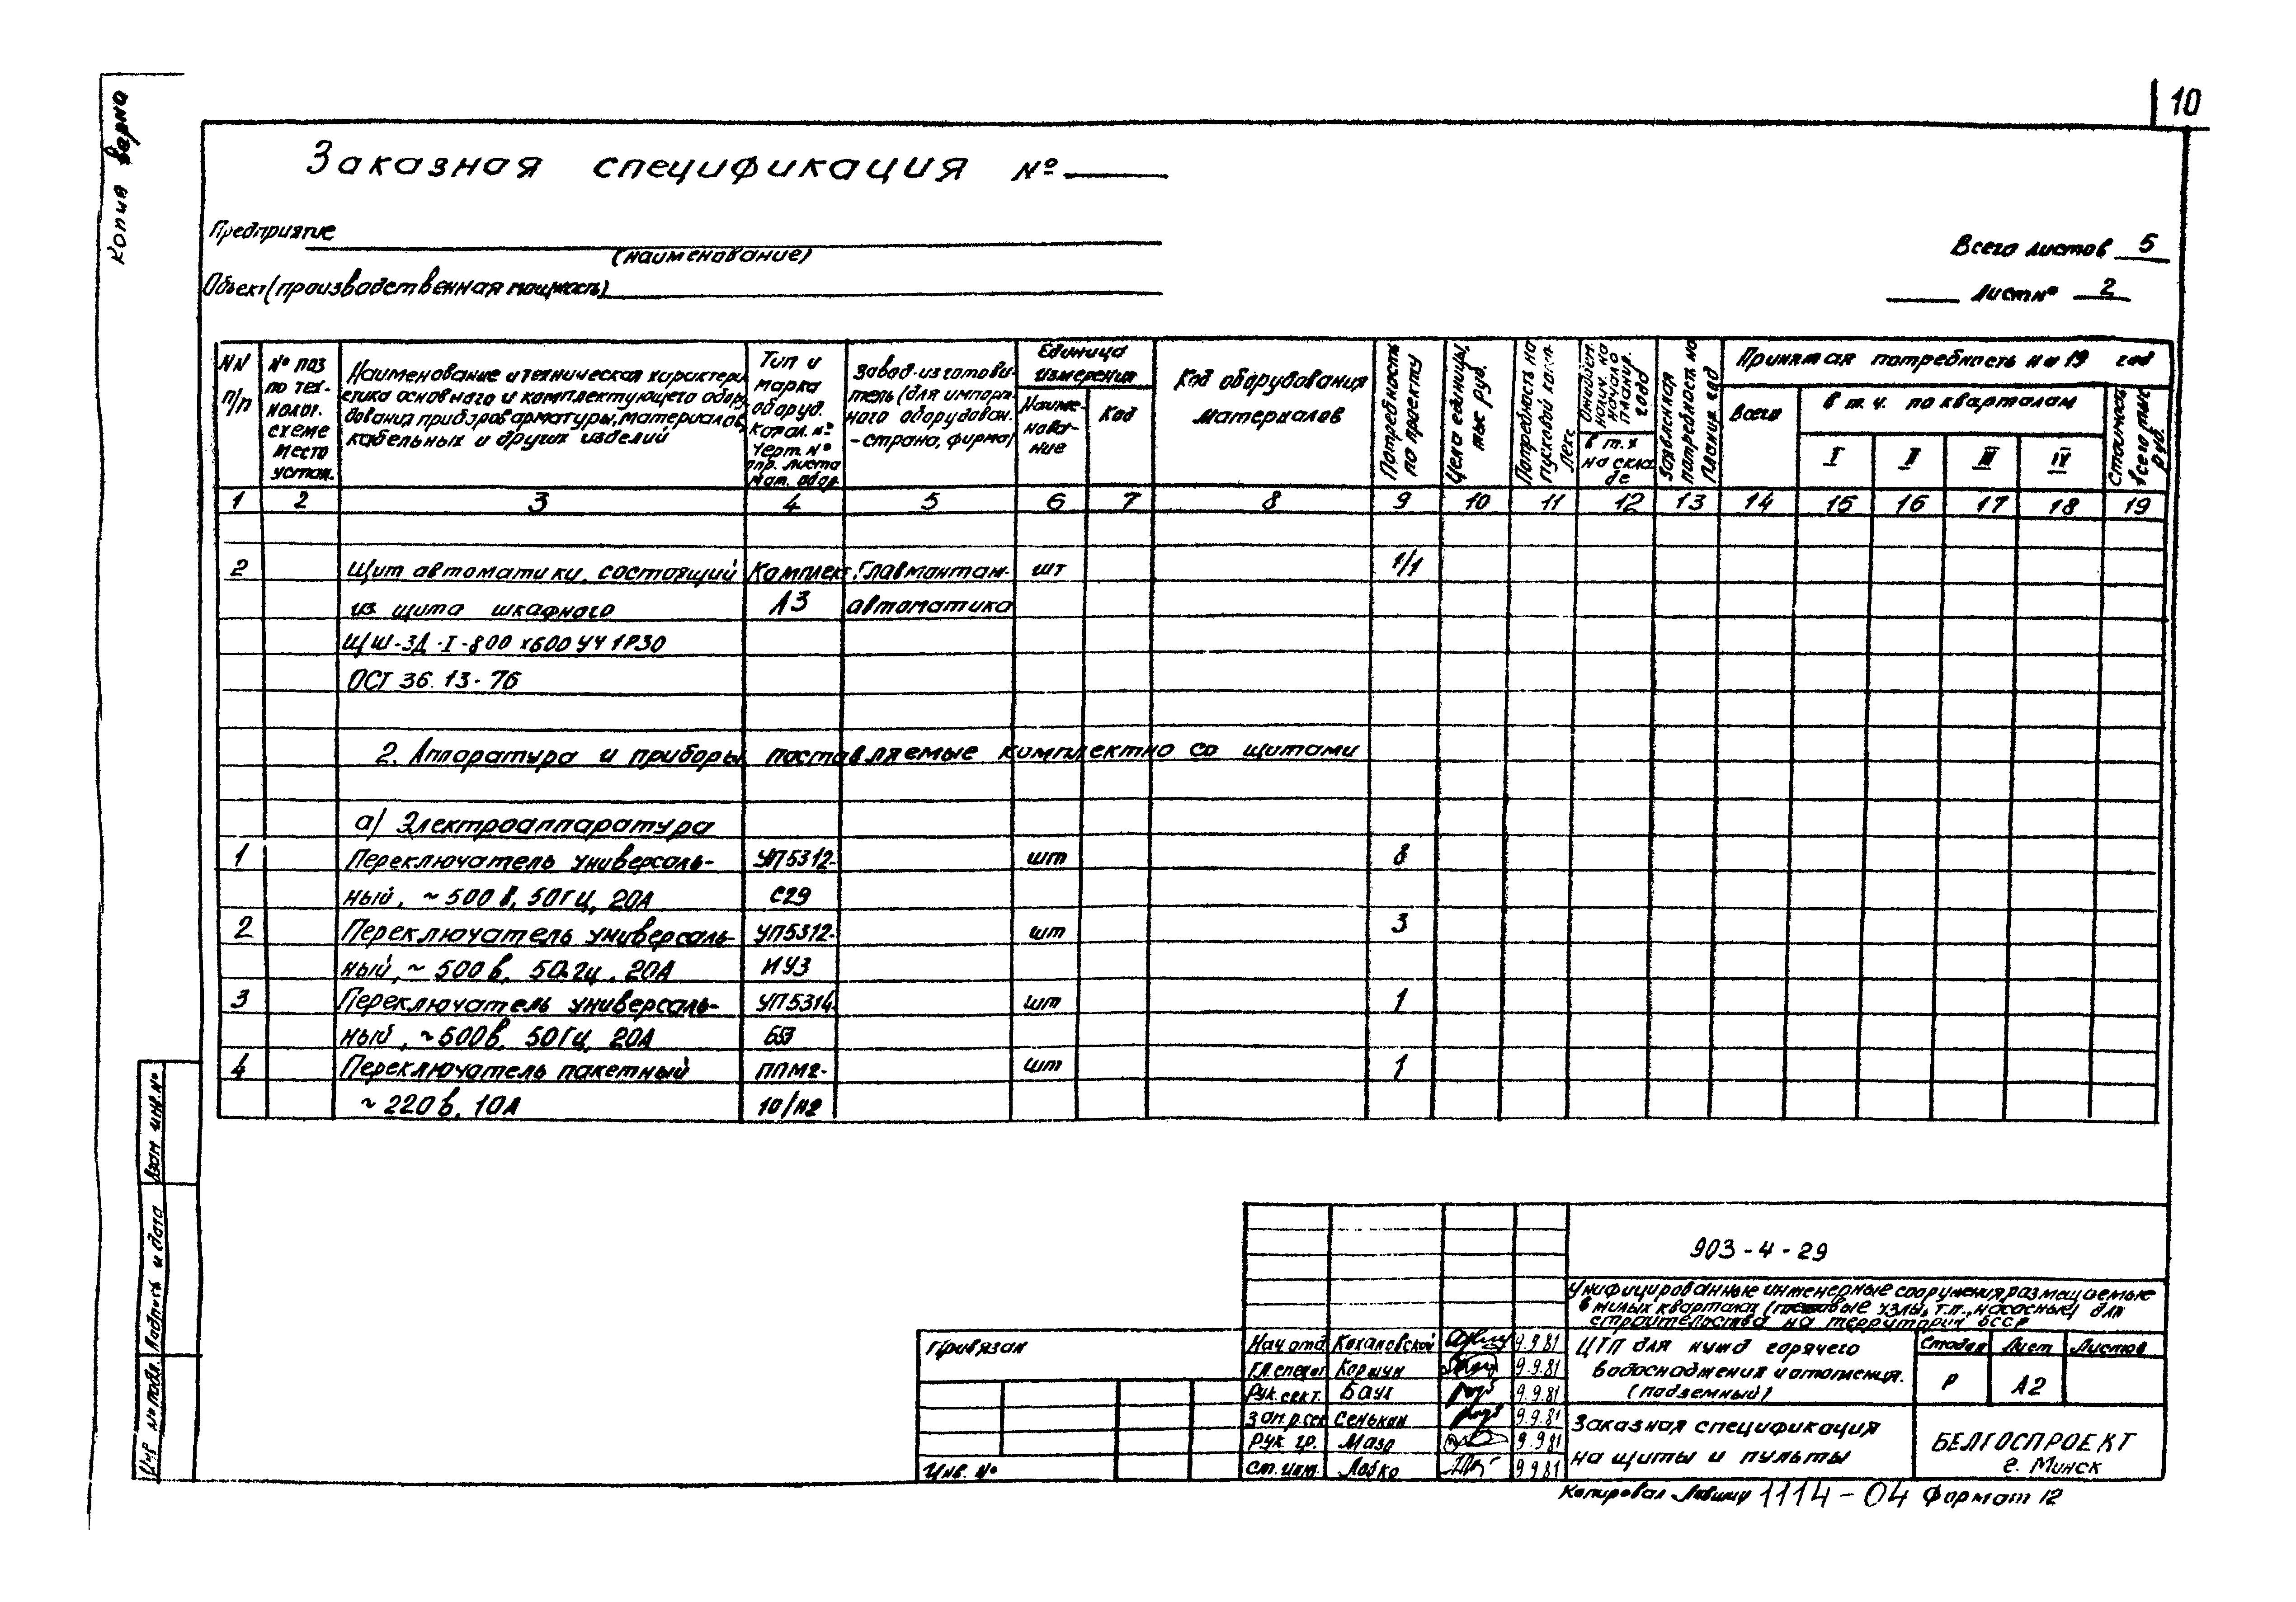 10
Копия верна
Заказная спецификация №
Предприятие
(наименование)
Всего листов 5
Объект (производственная мощность)
Лист № 2
NN п/п
№ поз по тех-нолог. схеме место устан.
Наименование и техническая характери
стика основного и комплектующего обору
дования приборов арматуры, материалов,
кабельных и других изделий
Тип и
марка
оборуд.
Катал. №
Черт. №
опр. листа
мат. обор.
Завод-изготови-
тель (для импорт-
ного оборудован.
-страна, фирма)
Единица измерения
Наиме-нова-ние
Код
Код оборудования
материалов
Потребность по проекту
Цена единицы, тыс руб.
Потребность на пусковой комп-лекс
Ожидаем. налич. на начало планир. года
в т.ч на скла де
Заявленная потребность на планир год
Принятая потребность на 19 год
Всего
в т.ч. по кварталам
I II III IV
Стоимость всего тыс руб.
1 2 3 4 5 6 7 8 9 10 11 12 13 14 15 16 17 18 19
2 Щит автоматики, состоящий Комплект Главмонтаж- шт 1/1
из щита шкафного А3 автоматика
ЩШ-ЗД-I-800х600 УЧ 1Р30
ОСТ 36.13-76
2. Аппаратура и приборы поставляемые комплектно со щитами
а) Электроаппаратура
1 Переключатель универсаль- УП5312- шт 8
ный, ~500 в, 50Гц, 20А С29
2 Переключатель универсаль- УП5312- шт 3
ный, ~500в, 50гц, 20А ИУЗ
3 Переключатель универсаль- УП5314- шт 1
ный, ~500в, 50Гц, 20А
4 Переключатель пакетный ППМ2- шт 1
~220в, 10А 10/н2
Взам инв.№
Подпись и дата
Инв № подл.
903-4-29
Унифицированные инженерные сооружения, размещаемые
в жилых кварталах (тепловые узлы, т.п., насосные) для
строительства на территории БССР
Привязан
Инв. №
Нач.отд Кохановский 9.9.81
Гл.спецот Коршун 9.9.81
Рук.сект. Баух 9.9.81
Зам.р.сек Сенькин 9.9.81
Рук гр. Мазо 9.9.81
Ст.инж. Лобко 9.9.81
ЦТП для нужд горячего
водоснабжения и отопления.
(подземный)
Стадия Лист Листов
Р А2
Заказная спецификация
на щиты и пульты
БЕЛГОСПРОЕКТ
г. Минск
Копировал 1114-04 Формат 12